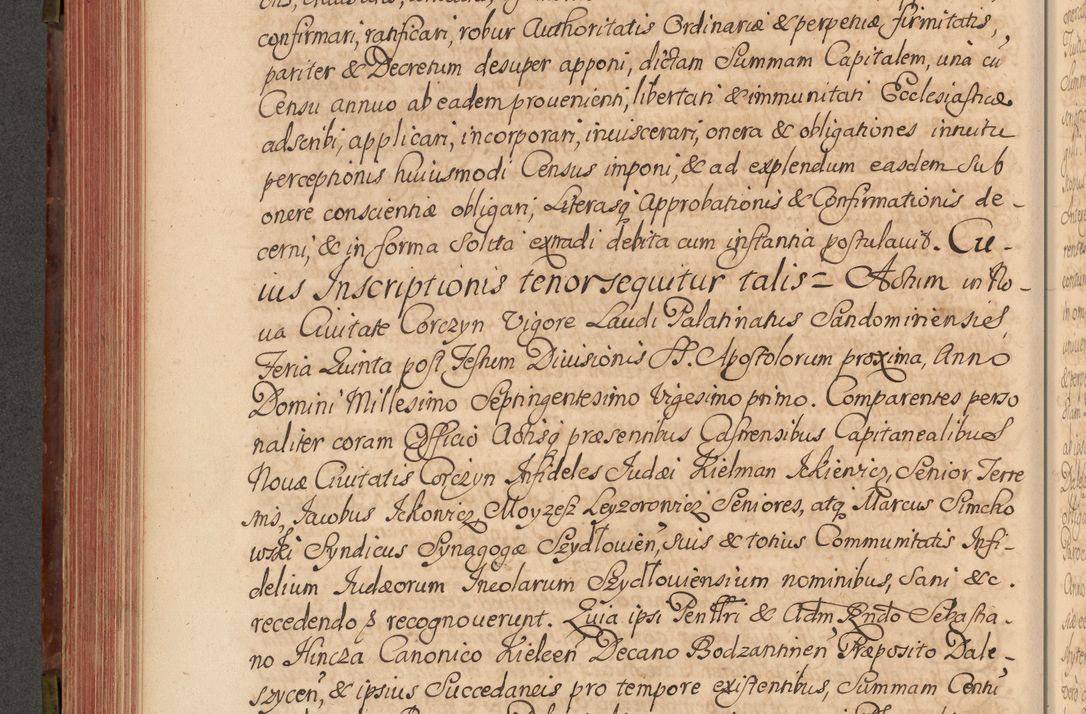 confirmari, ratificari, robur Authoritatis Ordinariæ & perpetuæ firmitatis,
pariter & Decretum desuper apponi, dictam Summam Capitalem, unà cũ
Censu annuo ab eadem provenienti, libertati & immunitati Ecclesiasticæ
adscribi, applicari, incorporari, inviscerari, onera & obligationes intuitu
perceptionis huiusmodi Census imponi, & ad explendum easdem sub
onere conscientiæ obligari, Literasq Approbationis & Confirmationis de-
cerni, & in forma solita extradi debita cum instantia postulavit. Cu-
ius Inscriptionis tenor sequitur talis = Actum in No-
va Civitate Corczyn Vigore Laudi Palatinatus Sandomiriensis,
Feria Quinta post Festum Divisionis SS. Apostolorum proxima, Anno
Domini Millesimo Septingentesimo Vigesimo primo. Comparentes perso
naliter coram Officio Actisq præsentibus Castrensibus Capitanealibus
Novæ Civitatis Corczyn Infideles Judæi Kielman Ickiewicz, Senior Terre
stris, Jacobus Ickowicz, Moyzesz Leyzorowicz Seniores, atq Marcus Simcho
wski Syndicus Synagogæ Szydłowień, suis & totius Communitatis Infi-
delium Judæorum Incolarum Szydłowiensium nominibus, Sani &c.
recedendo ꝑ recognoverunt. Quia ipsi Penffri & Adm Rndo Sebastia-
no Hincza Canonico Kieleeñ Decano Bodzantineñ Præposito Dale-
szyceñ, & ipsius Succedaneis pro tempore existentibus, Summam Centũ